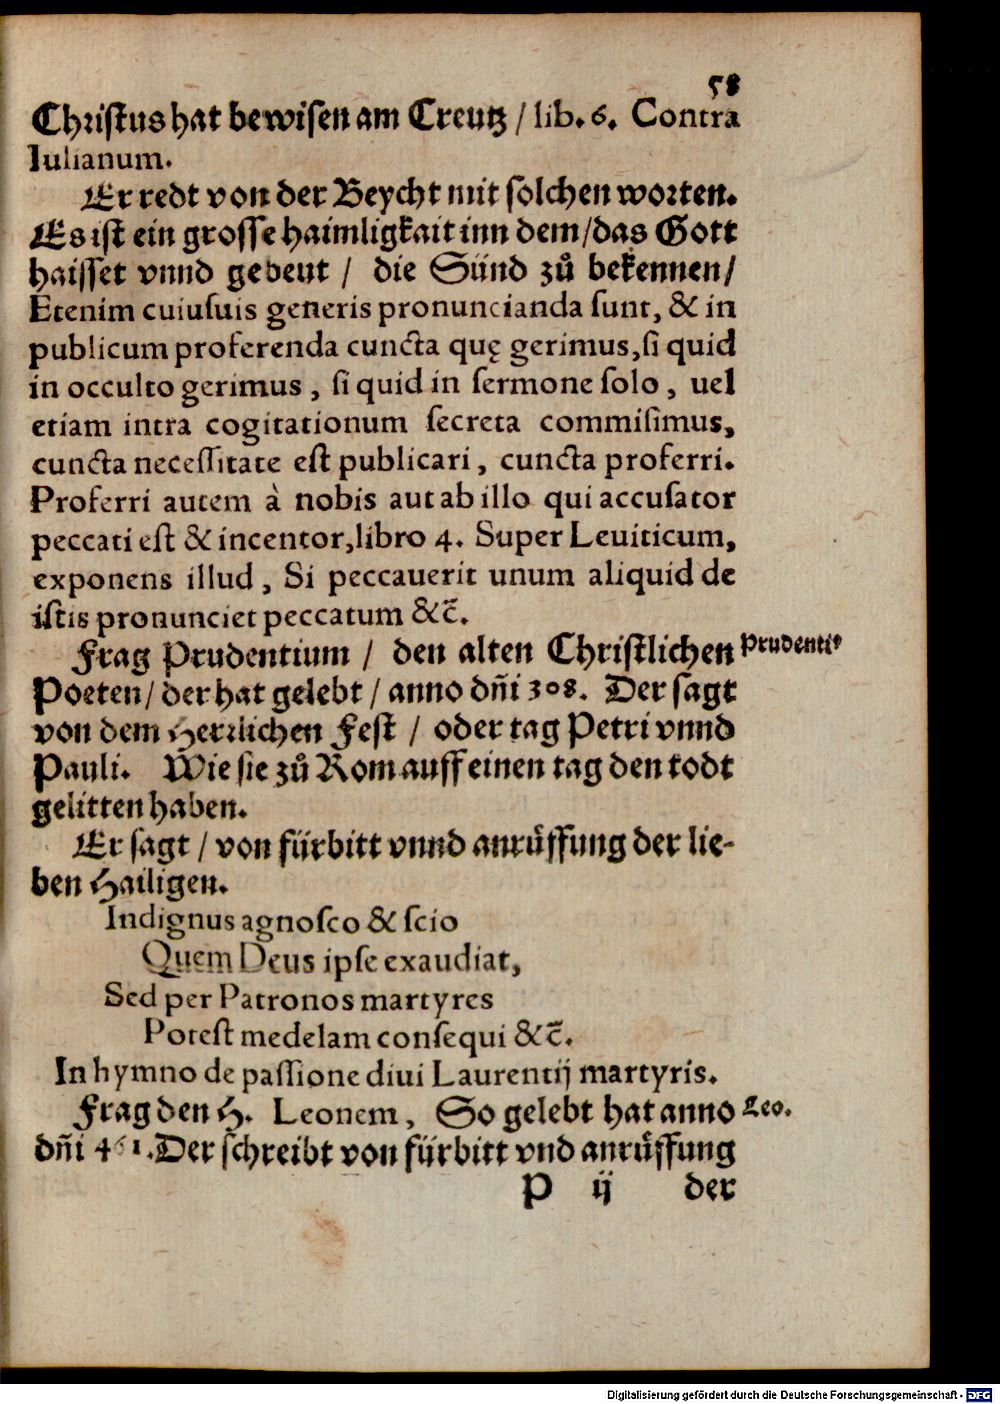 58
Christus hat bewisen am Creutz / lib. 6. Contra
Iulianum.
Er redt von der Beycht mit solchen worten.
Es ist ein grosse haimligkait inn dem / das Gott
haisset vnnd gebeut / die Sünd zů bekennen /
Etenim cuiusuis generis pronuncianda sunt, & in
publicum proferenda cuncta quę gerimus, si quid
in occulto gerimus, si quid in sermone solo, uel
etiam intra cogitationum secreta commisimus,
cuncta necessitate est publicari, cuncta proferri.
Proferri autem à nobis aut ab illo qui accusator
peccati est & incentor, libro 4. Super Leuiticum,
exponens illud, Si peccauerit unum aliquid de
istis pronunciet peccatum &c̃.
Frag Prudentium / den alten Christlichen Prudentiꝰ
Poeten / der hat gelebt / anno dñi 308. Der sagt
von dem Herrlichen Fest / oder tag Petri vnnd
Pauli. Wie sie zů Rom auff einen tag den todt
gelitten haben.
Er sagt / von fürbitt vnnd anrůffung der lie-
ben Hailigen.
Indignus agnosco & scio
Quem Deus ipse exaudiat,
Sed per Patronos martyres
Potest medelam consequi &c̃.
In hymno de passione diui Laurentij martyris.
Frag den H. Leonem, So gelebt hat anno Leo.
dñi 461. Der schreibt von fürbitt vnd anrůffung
P ij der
Digitalisierung gefördert durch die Deutsche Forschungsgemeinschaft - DFG